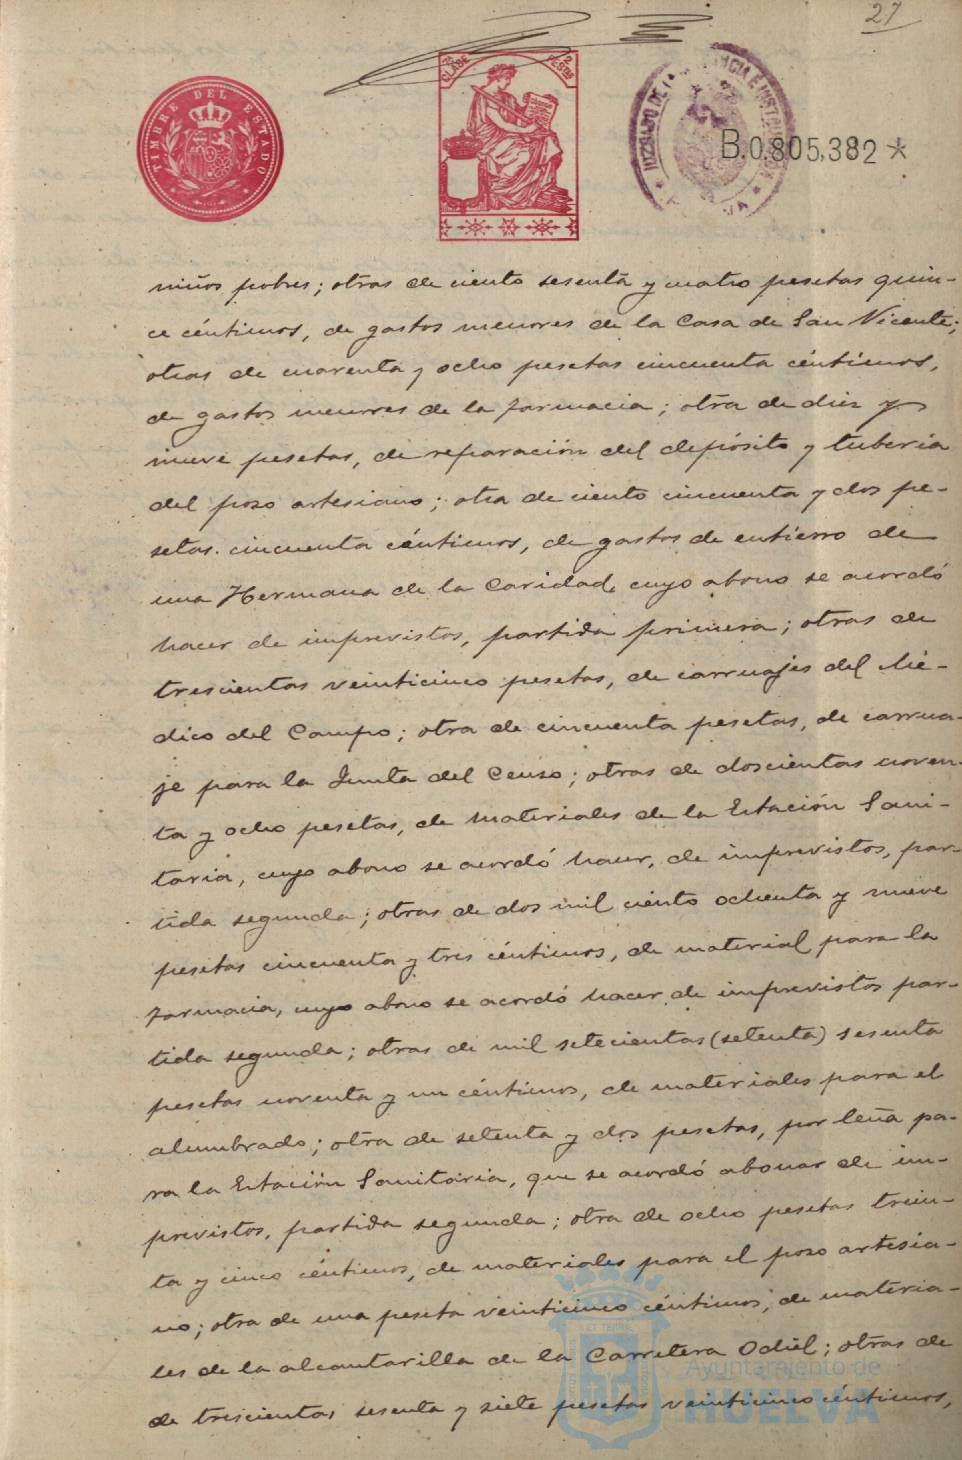 27
TIMBRE DEL ESTADO
CLASE
2 PESETAS
JUZGADO DE LA INSTANCIA E INSTRUCCION
B.0.805,382*
niños pobres; otras de ciento sesenta y cuatro pesetas quin-
ce céntimos, de gastos menores de la Casa de San Vicente;
otras de cuarenta y ocho pesetas cincuenta céntimos,
de gastos menores de la farmacia; otra de diez y
nueve pesetas, de reparación del depósito y tuberia
del pozo artesiano; otra de ciento cincuenta y dos pe-
setas cincuenta céntimos, de gastos de entierro de
una Hermana de la Caridad, cuyo abono se acordó
hacer de imprevistos, partida primera; otras de
trescientas veinticinco pesetas, de carruajes del Mé-
dico del Campo; otra de cincuenta pesetas, de carrua-
je para la Junta del Censo; otras de doscientas noven-
ta y ocho pesetas, de materiales de la Estación Sani-
taria, cuyo abono se acordó hacer, de imprevistos, par-
tida segunda; otras de dos mil ciento ochenta y nueve
pesetas cincuenta y tres céntimos, de material para la
farmacia, cuyo abono se acordó hacer de imprevistos par-
tida segunda; otras de mil setecientas (setenta) sesenta
pesetas noventa y un céntimos, de materiales para el
alumbrado; otra de setenta y dos pesetas, por leña pa-
ra la Estación Sanitaria, que se acordó abonar de im-
previstos, partida segunda; otra de ocho pesetas trein-
ta y cinco céntimos, de materiales para el pozo artesia-
no; otra de una peseta veinticinco céntimos, de materia-
les de la alcantarilla de la Carretera Odiel; otras de
de trescientas sesenta y siete pesetas veinticinco céntimos,
Ayuntamiento de
HUELVA